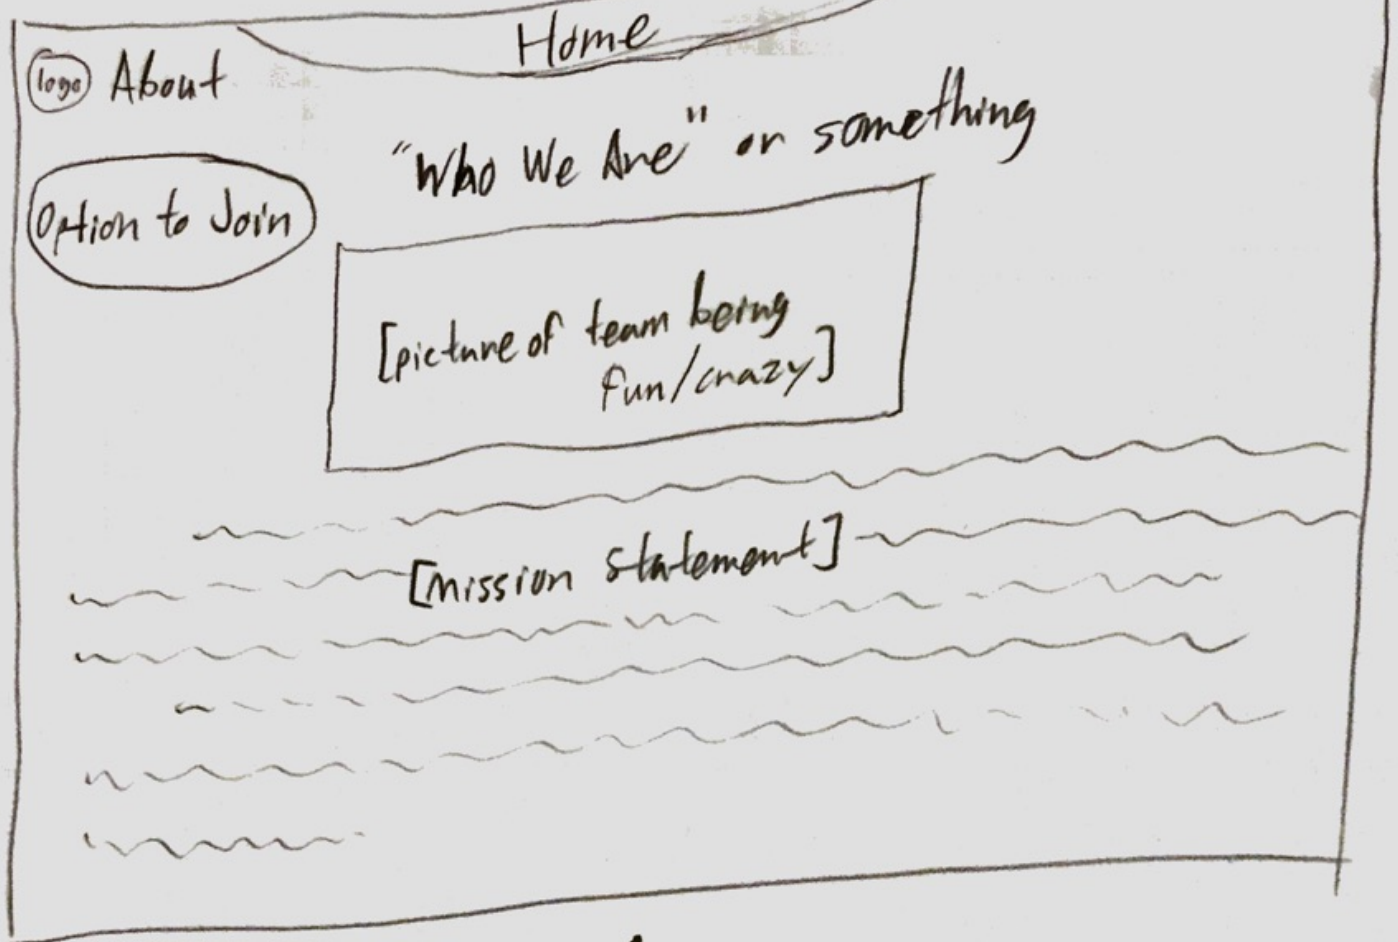 Home
logo About
"Who We Are" or something
Option to Join
[picture of team being
fun/crazy]
[mission statement]